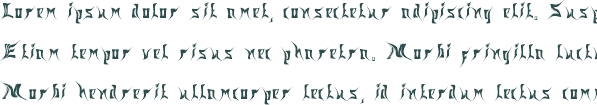 Lorem ipsum dolor sit amet, consectetur adipiscing elit. Susp
Etiam tempor vel risus nec pharetra. Morbi fringilla luct
Morbi hendrerit ullamcorper lectus, id interdum lectus com